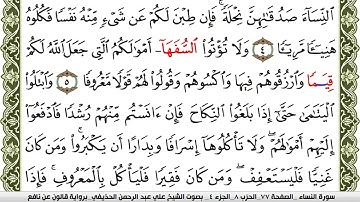 اَ۬لنِّسَآءَ صَدُقَٰتِهِنَّ نِحْلَةٗۖ فَإِن طِبْنَ لَكُمْ عَن شَےْءٖ مِّنْهُ نَفْساٗ فَكُلُوهُ
هَنِيٓـٔاٗ مَّرِيٓـٔاٗۖ ٤ وَلَا تُؤْتُواْ اُ۬لسُّفَهَآ أَمْوَٰلَكُمُ اُ۬لتِے جَعَلَ اَ۬للَّهُ لَكُمْ
قِيَماٗ وَارْزُقُوهُمْ فِيهَا وَاكْسُوهُمْ وَقُولُواْ لَهُمْ قَوْلاٗ مَّعْرُوفاٗۖ ٥ وَابْتَلُواْ
اُ۬لْيَتَٰمَىٰ حَتَّىٰٓ إِذَا بَلَغُواْ اُ۬لنِّكَاحَ فَإِنْ ءَانَسْتُم مِّنْهُمْ رُشْداٗ فَادْفَعُوٓاْ
إِلَيْهِمْ أَمْوَٰلَهُمْۖ وَلَا تَأْكُلُوهَآ إِسْرَافاٗ وَبِدَاراً أَنْ يَّكْبَرُواْۖ وَمَن كَانَ
غَنِيّاٗ فَلْيَسْتَعْفِفْۖ وَمَن كَانَ فَقِيراٗ فَلْيَأْكُلْ بِالْمَعْرُوفِۖ فَإِذَا
سورة النساء _ الصفحة ٧٧ _ الحزب ٨ _ الجزء ٤ _ بصوت الشيخ علي عبد الرحمن الحذيفي _ برواية قالون عن نافع